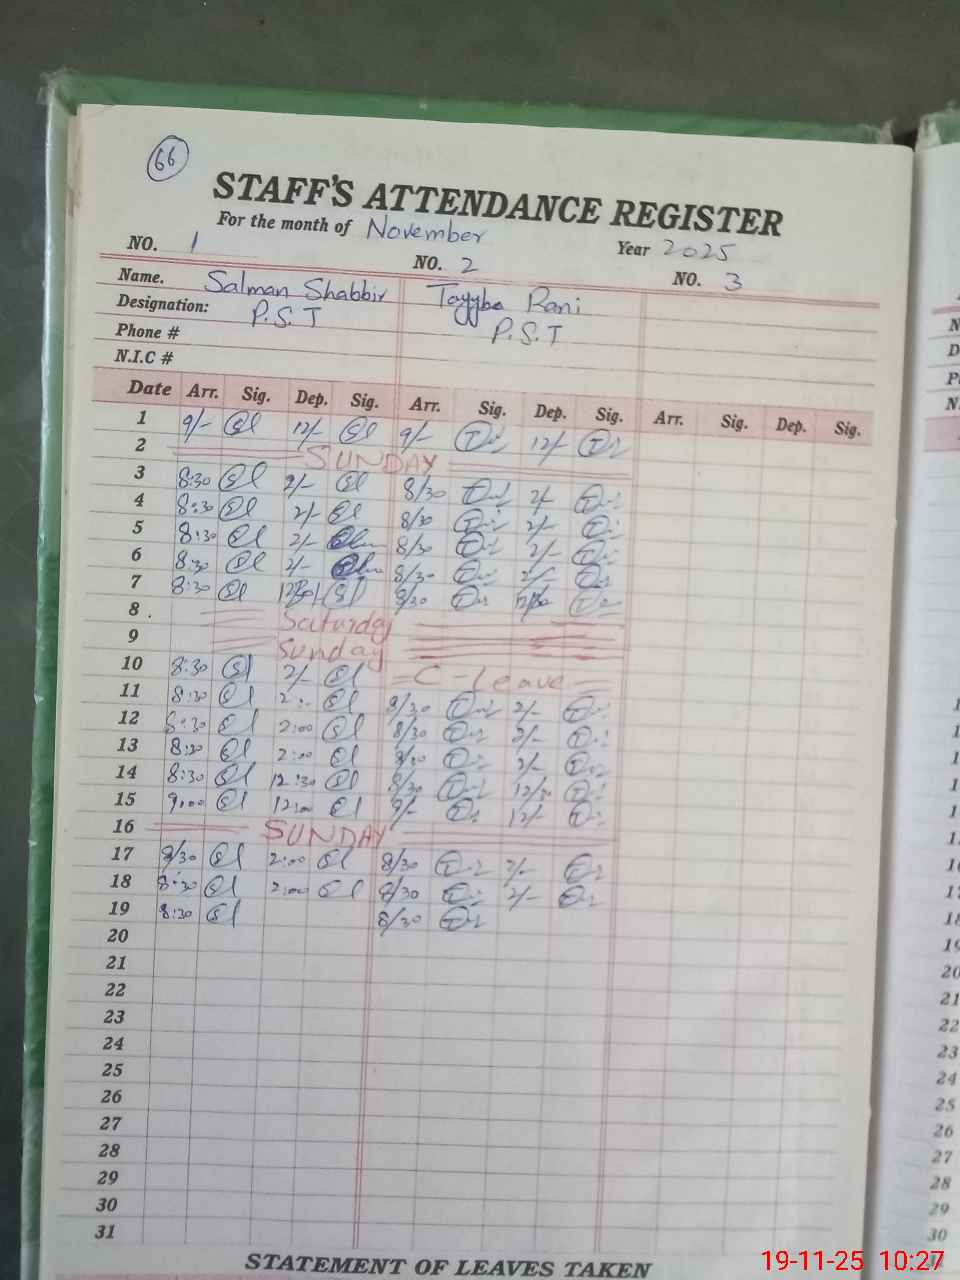 66
STAFF'S ATTENDANCE REGISTER
For the month of November
Year 2025
NO. 1 NO. 2 NO. 3
Name. Salman Shabbir Tayyba Rani
Designation: P.S.T P.S.T
Phone #
N.I.C #
Date Arr. Sig. Dep. Sig. Arr. Sig. Dep. Sig. Arr. Sig. Dep. Sig.
1 9/- 12/- 9/- 12/-
2 SUNDAY
3 8:30 2/- 8/30 2/-
4 8:30 2/- 8/30 2/-
5 8:30 2/- 8/30 2/-
6 8:30 2/- 8/30 2/-
7 8:30 8/30
8 Saturday
9 Sunday
10 8:30 2/- C-Leave
11 8:30 8/30 2/-
12 8:30 2:00 8/30 2/-
13 8:30 2:00 8/30 2/-
14 8:30 12:30 8/30 12/30
15 9:00 12:00 9/- 12/-
16 SUNDAY
17 8/30 2:00 8/30 2/-
18 8:30 2:00 8/30 2/-
19 8:30 8/30
20
21
22
23
24
25
26
27
28
29
30
31
STATEMENT OF LEAVES TAKEN
19-11-25 10:27